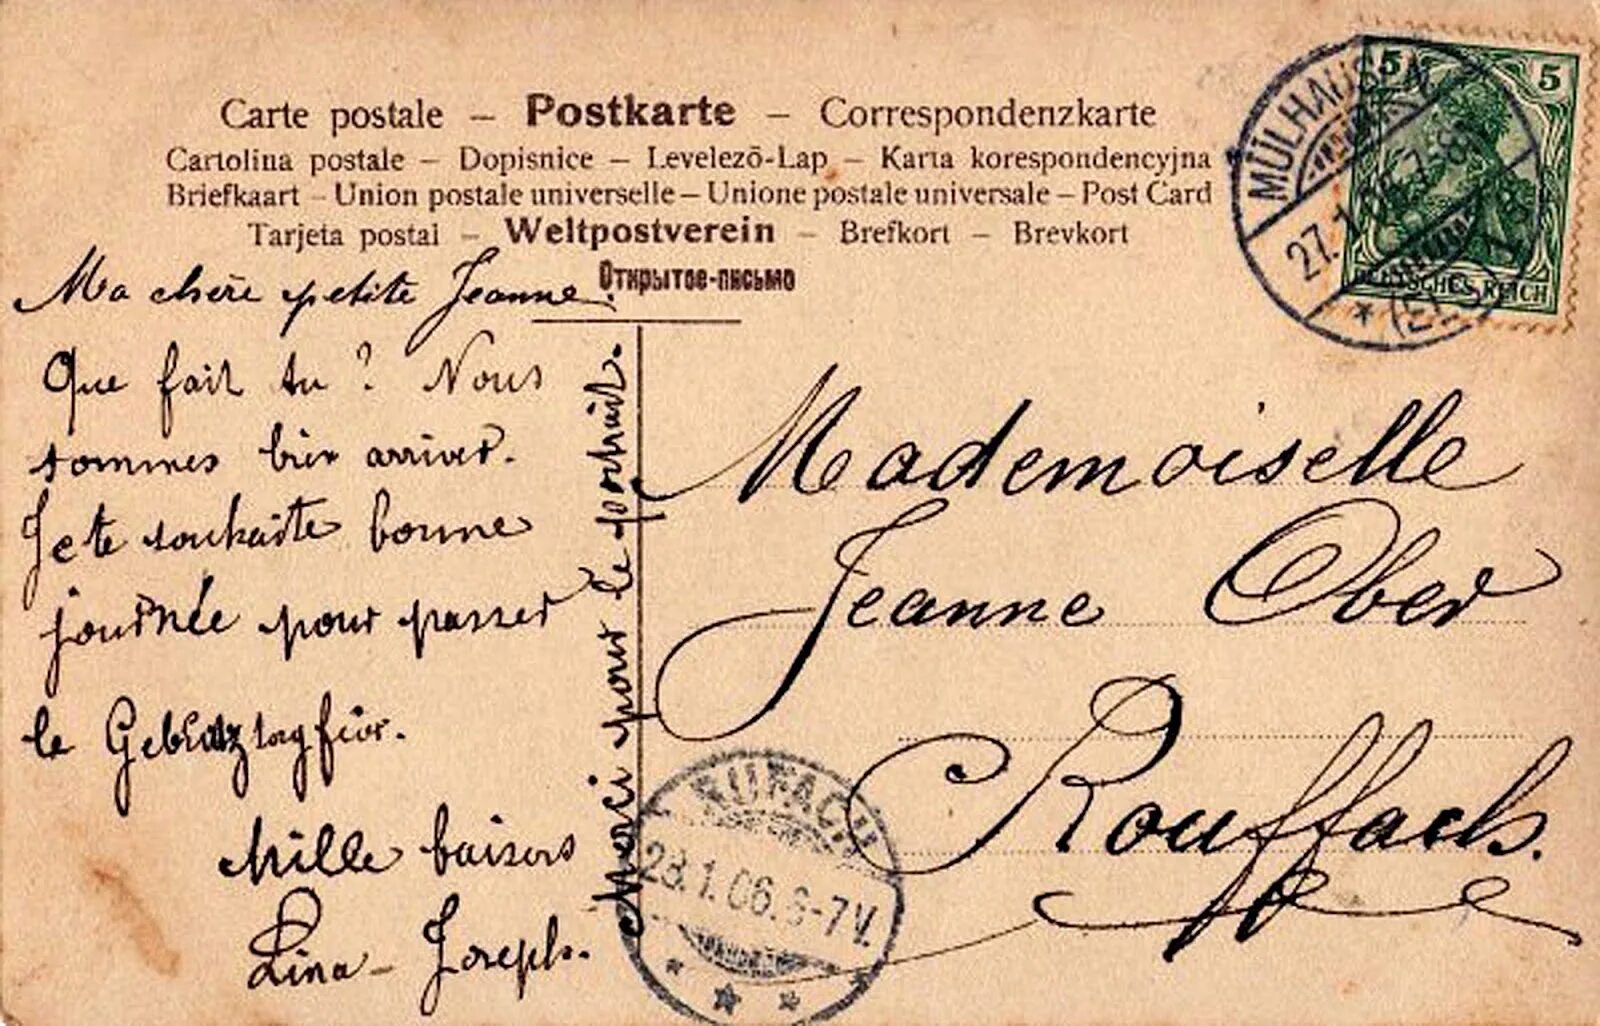 Carte postale – Postkarte – Correspondenzkarte
Cartolina postale – Dopisnice – Levelezõ-Lap – Karta korespondencyjna
Briefkaart – Union postale universelle – Unione postale universale – Post Card
Tarjeta postal – Weltpostverein – Brefkort – Brevkort
Открытое-письмо
Ma chère petite Jeanne.
Que fait tu? Nous
sommes bien arriver.
Je te souhaite bonne
journée pour passer
le
Mille baisers
Lina – Joseph.
Merci pour le portrait.
Mademoiselle
Jeanne Ober
Rouffach.
5 5
DEUTSCHES REICH
MÜLHAUSEN
27.1.06. 7-8
* (ELS.)
RUFACH
28.1.06. 6-7V.